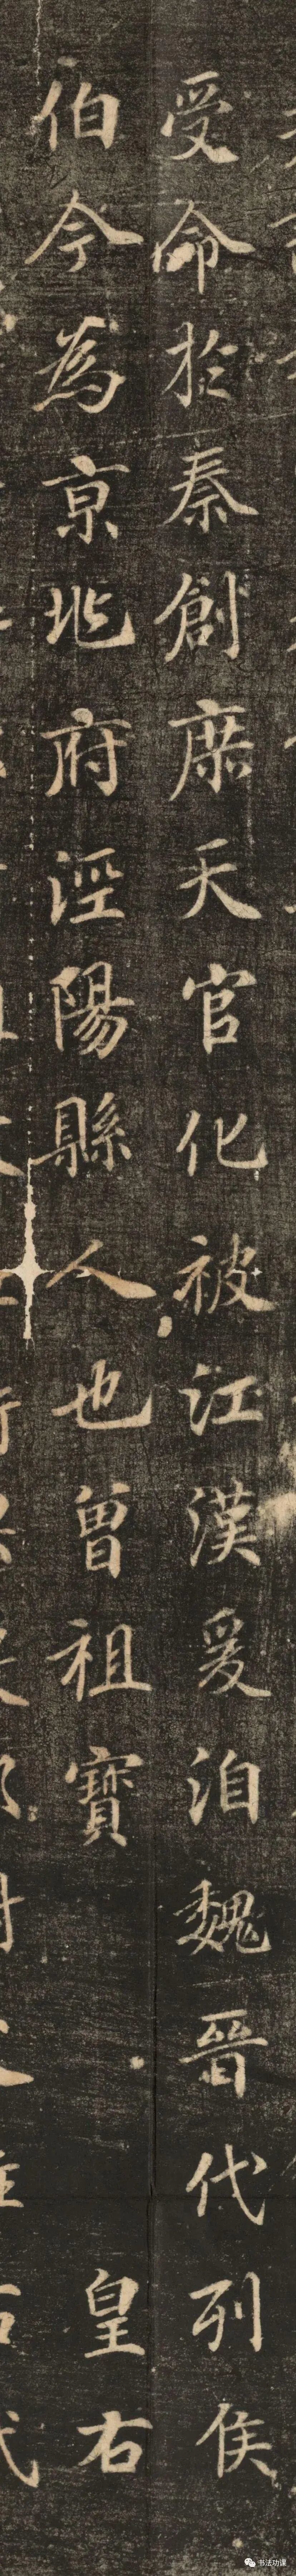 受命於秦創庶天官化被江漢爰洎魏晉代列侯
伯今為京兆府涇陽縣人也曾祖寶皇右
书法功课